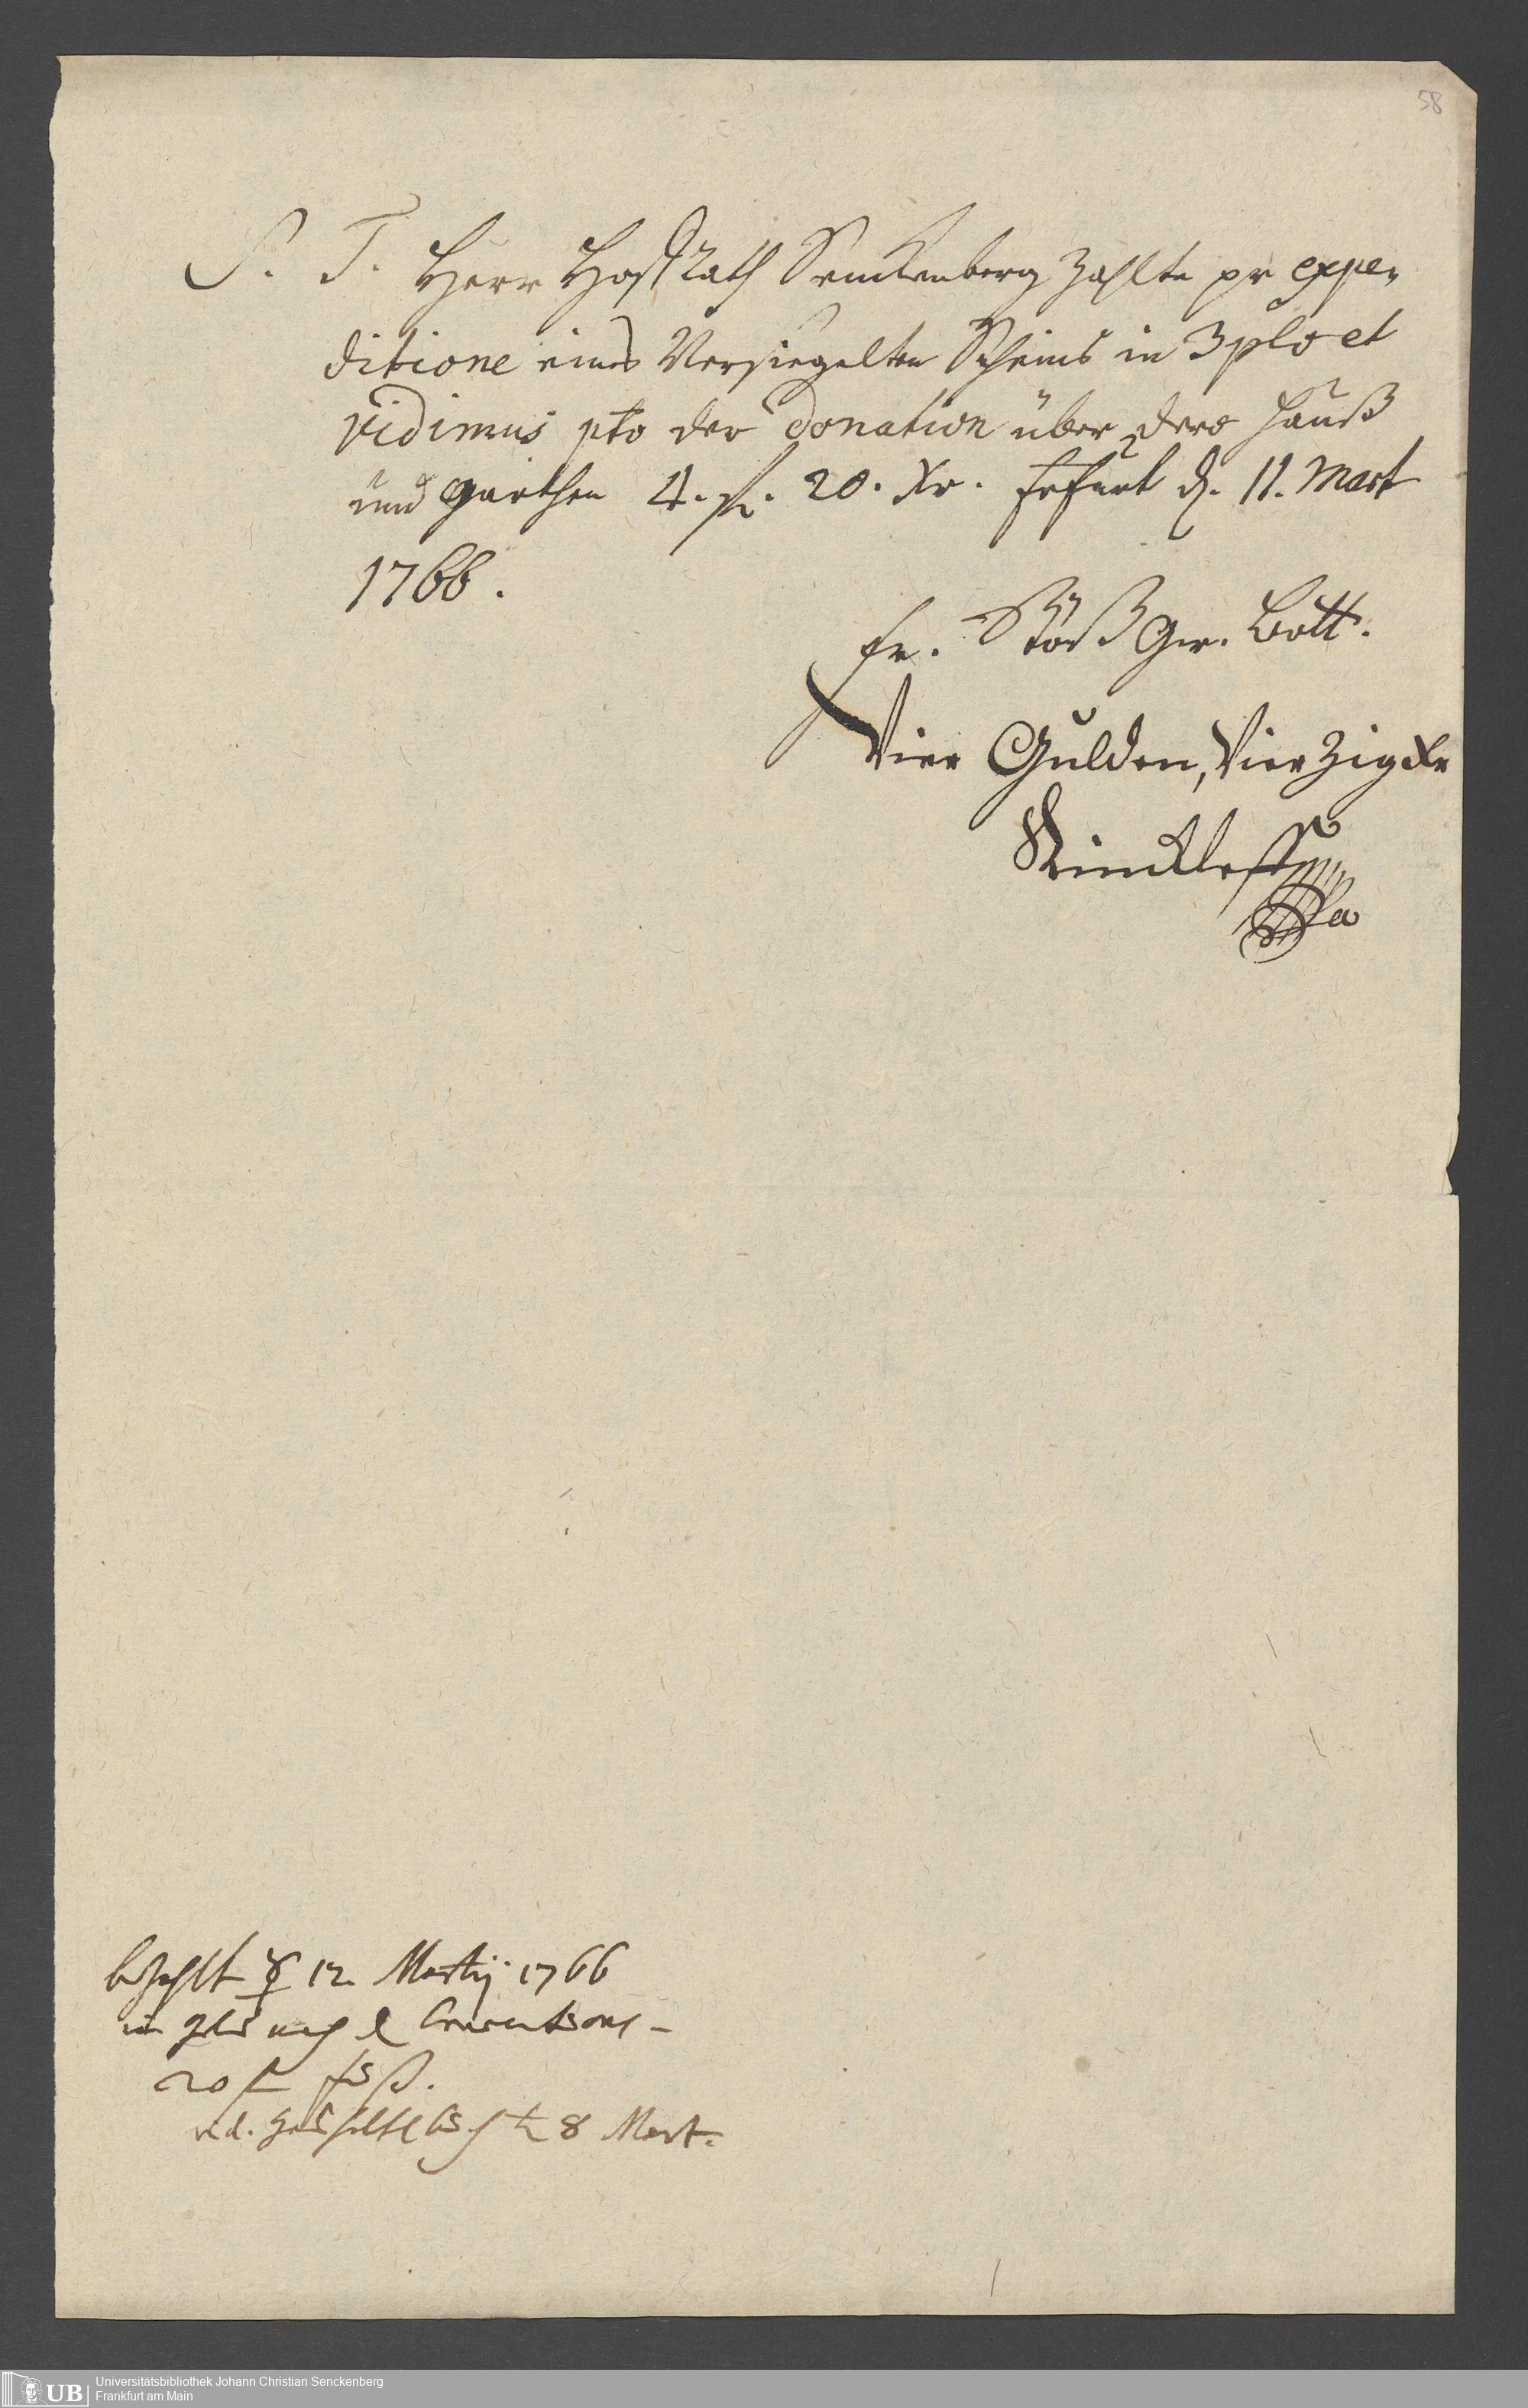 58
S. T. Herr Hoffrath Senckenberg zahlte pr expe-
ditione eines Versiegelten Scheins in 3plo et
vidimus pto der donation über dero Hauß
und garthen 4. fl. 20. Xr. Frfurt d. 11. Mart
1766.
Fr. Stöß Ger. Bott.
Vier Gulden, Vierzig Xr
bezahlt ☿ 12 Martij 1766
in
20
8 Mart.
UB Universitätsbibliothek Johann Christian Senckenberg
Frankfurt am Main